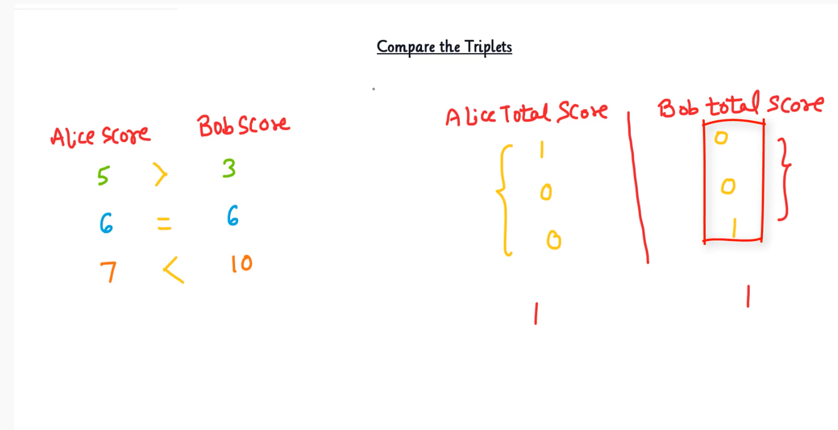 Compare the Triplets
Alice Score Bob Score
5 > 3
6 = 6
7 < 10
Alice Total Score Bob total score
1 0
0 0
0 1
1 1